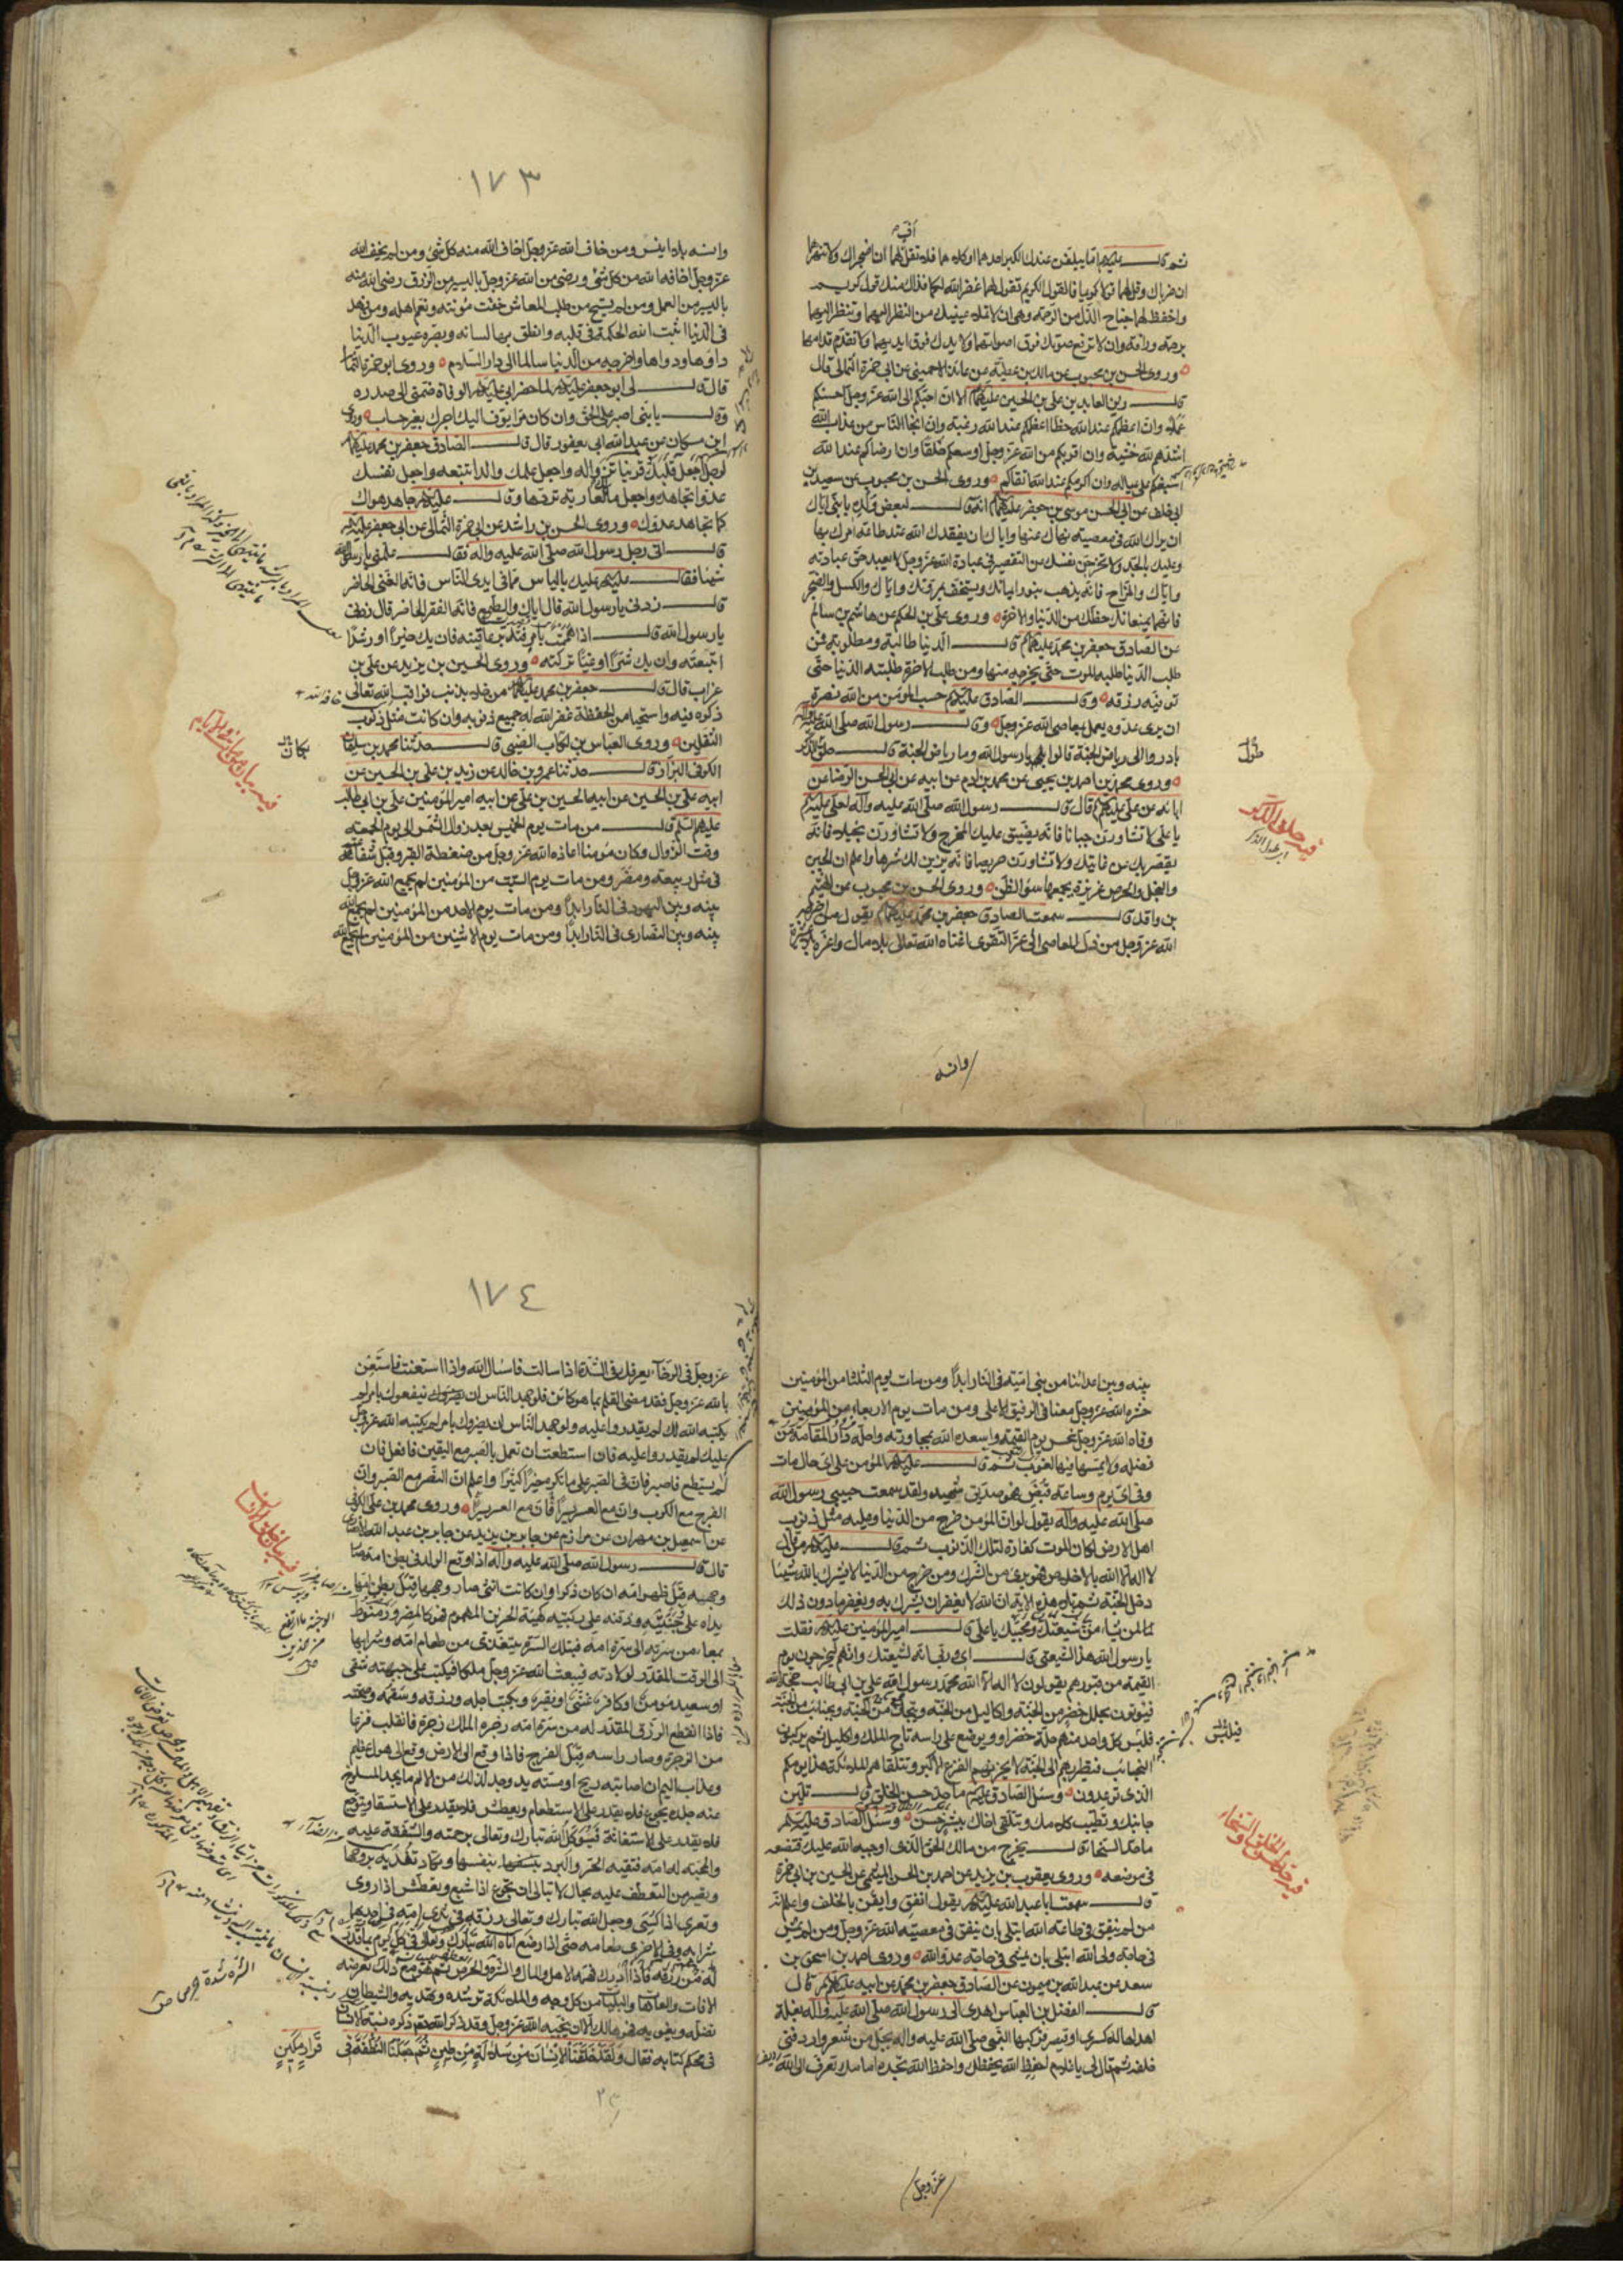 ثم قال عليه السلام اما يبلغن عندك الكبر احدهما او كلاهما فلا تقل لهما اف ان اضجراك ولا تنهرهما
ان ضرباك وقل لهما قولا كريما قال القول الكريم تقول لهما غفر الله لكما فذاك منك قول كريم
واخفض لهما جناح الذل من الرحمة وهو ان لا تملا عينيك من النظر اليهما وتنظر اليهما
برحمة ورأفة وان لا ترفع صوتك فوق اصواتهما ولا يدك فوق ايديهما ولا تتقدم قدامهما
وروى الحسن بن محبوب عن مالك بن عطية عن عائذ الاحمسي عن ابي حمزة الثمالي قال
قال زين العابدين علي بن الحسين عليهما السلام الا ان احبكم الى الله عز وجل احسنكم
عملا وان اعظمكم عند الله حظا اعظمكم عند الله رغبة وان انجا الناس من عذاب الله
اشدهم لله خشية وان اقربكم من الله عز وجل اوسعكم خلقا وان ارضاكم عند الله
اسبغكم على عياله وان اكرمكم عند الله اتقاكم وروى الحسن بن محبوب عن سعيد بن
ابي خلف عن ابي الحسن موسى بن جعفر عليهما السلام انه قال لبعض ولده يا بني اياك
ان يراك الله في معصية نهاك عنها واياك ان يفقدك الله عند طاعة امرك بها
وعليك بالجد ولا تخرجن نفسك من التقصير في عبادة الله عز وجل لا يعبد حق عبادته
واياك والمزاح فانه يذهب بنور ايمانك ويستخف بمروتك واياك والكسل والضجر
فانهما يمنعانك حظك من الدنيا والاخرة وروى علي بن الحكم عن هاشم بن سالم
عن الصادق جعفر بن محمد عليهما السلام قال الدنيا طالبة ومطلوبة فمن
طلب الدنيا طلبه الموت حتى يخرجه منها ومن طلب الاخرة طلبته الدنيا حتى
توفيه رزقه وقال الصادق عليه السلام حسب المؤمن من الله نصرة
ان يرى عدوه يعمل بمعاصي الله عز وجل وقال رسول الله صلى الله عليه واله
بادروا الى رياض الجنة قالوا يا رسول الله وما رياض الجنة قال حلق الذكر
وروى محمد بن احمد بن يحيى عن محمد بن ادم عن ابيه عن ابي الحسن الرضا عن
ابائه عن علي عليهم السلام قال قال رسول الله صلى الله عليه وآله لعلي عليه السلام
يا علي لا تشاورن جبانا فانه يضيق عليك المخرج ولا تشاورن بخيلا فانه
يقصر بك عن غايتك ولا تشاورن حريصا فانه يزين لك شرها واعلم ان الجبن
والبخل والحرص غريزة يجمعها سوء الظن وروى الحسن بن محبوب عن الهيثم
بن واقد قال سمعت الصادق جعفر بن محمد عليهما السلام يقول من اخرجه
الله عز وجل من ذل المعاصي الى عز التقوى اغناه الله تعالى بلا مال واعزه بلا عشيرة
فيه حلق الذكر
وانسه
١٧٣
وانسه بلا انيس ومن خاف الله عز وجل اخاف الله منه كل شئ ومن لم يخف الله
عز وجل اخافه الله من كل شئ ومن رضي من الله عز وجل باليسير من الرزق رضي الله منه
باليسير من العمل ومن لم يستح من طلب المعاش خفت مؤنته ونعم اهله ومن زهد
في الدنيا اثبت الله الحكمة في قلبه وانطق بها لسانه وبصره عيوب الدنيا
داءها ودواها واخرجه من الدنيا سالما الى دار السلام وروى ابو حمزة الثمالي
قال قال لي ابو جعفر عليه السلام لما حضر ابي عليه السلام الوفاة ضمني الى صدره
وقال يا بني اصبر على الحق وان كان مرا يوف اليك اجرك بغير حساب وروى
ابن مسكان عن عبد الله ابي يعفور قال قال الصادق جعفر بن محمد عليهما السلام
لرجل اجعل قلبك قرينا تزاوله واجعل علمك والدا تتبعه واجعل نفسك
عدوا تجاهده واجعل مالك عارية تردها وقال عليه السلام جاهد هواك
كما تجاهد عدوك وروى الحسن بن راشد عن ابي حمزة الثمالي عن ابي جعفر عليه السلام
قال اتى رجل رسول الله صلى الله عليه واله فقال علمني يا رسول الله
شيئا فقال عليه السلام عليك بالياس مما في ايدي الناس فانه الغنى الحاضر
قال زدني يا رسول الله قال اياك والطمع فانه الفقر الحاضر قال زدني
يا رسول الله قال اذا هممت بامر فتدبر عاقبته فان يك خيرا او رشدا
اتبعته وان يك شرا او غيا تركته وروى الحسين بن يزيد عن علي بن
غراب قال قال جعفر بن محمد عليهما السلام من خلا بذنب فراقب الله تعالى
ذكره فيه واستحيا من الحفظة غفر الله له جميع ذنوبه وان كانت مثل ذنوب
الثقلين وروى العباس بن بكار الضبي قال حدثنا محمد بن سليمان
الكوفي البزاز قال حدثنا عمرو بن خالد عن زيد بن علي بن الحسين عن
ابيه علي بن الحسين عن ابيه الحسين بن علي عن ابيه امير المؤمنين علي بن ابي طالب
عليهم السلام قال من مات يوم الخميس بعد زوال الشمس الى يوم الجمعة
وقت الزوال وكان مؤمنا اعاذه الله عز وجل من ضغطة القبر وقبل شفاعته
في مثل ربيعة ومضر ومن مات يوم السبت من المؤمنين لم يجمع الله عز وجل
بينه وبين اليهود في النار ابدا ومن مات يوم الاحد من المؤمنين لم يجمع الله
بينه وبين النصارى في النار ابدا ومن مات يوم الاثنين من المؤمنين لم يجمع الله
بكار
بينه وبين اعدائنا من بني امية في النار ابدا ومن مات يوم الثلثا من المؤمنين
حشره الله عز وجل معنا في الرفيق الاعلى ومن مات يوم الاربعاء من المؤمنين
وقاه الله عز وجل نحس يوم القيمة واسعده الله بمجاورته واحله دار المقامة من
فضله لا يمسه فيها نصب ولا يمسه فيها لغوب ثم قال عليه السلام المؤمن على اي حال مات
وفي اي يوم وساعة قبض فهو صديق شهيد ولقد سمعت حبيبي رسول الله
صلى الله عليه وآله يقول لو ان المؤمن خرج من الدنيا وعليه مثل ذنوب
اهل الارض لكان الموت كفارة لتلك الذنوب ثم قال عليه السلام من قال
لا اله الا الله باخلاص فهو برئ من الشرك ومن خرج من الدنيا لا يشرك بالله شيئا
دخل الجنة ثم تلا هذه الاية ان الله لا يغفر ان يشرك به ويغفر ما دون ذلك
لمن يشاء من شيعتك ومحبيك يا علي قال امير المؤمنين عليه السلام فقلت
يا رسول الله هذا لشيعتي قال اي وربي انه لشيعتك وانهم ليخرجون يوم
القيمة من قبورهم يقولون لا اله الا الله محمد رسول الله علي بن ابي طالب حجة الله
فيؤتون بحلل خضر من الجنة واكاليل من الجنة وتيجان من الجنة ونجائب من الجنة
فيلبس كل واحد منهم حلة خضراء ويوضع على راسه تاج الملك واكليل ثم يركبون
النجائب فتطير بهم الى الجنة لا يحزنهم الفزع الاكبر وتتلقاهم الملئكة هذا يومكم
الذي توعدون وسئل الصادق عليه السلام ما حد حسن الخلق قال تلين
جانبك وتطيب كلامك وتلقى اخاك ببشر حسن وسئل الصادق عليه السلام
ما حد السخا قال تخرج من مالك الحق الذي اوجبه الله عليك فتضعه
في موضعه وروى يعقوب بن يزيد عن احمد بن الحسن الميثمي عن الحسين بن ابي حمزة
قال سمعت ابا عبد الله عليه السلام يقول انفق وايقن بالخلف واعلم انه
من لم ينفق في طاعة الله ابتلي بان ينفق في معصية الله عز وجل ومن لم يمش
في حاجة ولي الله ابتلي بان يمشي في حاجة عدو الله وروى احمد بن اسحق بن
سعد عن عبد الله بن ميمون عن الصادق جعفر بن محمد عن ابيه عليهما السلام قال
قال الفضل بن العباس اهدي الى رسول الله صلى الله عليه وآله بغلة
اهداها له كسرى او قيصر فركبها النبي صلى الله عليه واله بجل من شعر واردفني
خلفه ثم قال لي يا غلام احفظ الله يحفظك واحفظ الله تجده امامك تعرف الى الله
فيلبس
فيه حد حسن الخلق والسخاء
عز وجل
١٧٤
عز وجل في الرخاء يعرفك في الشدة اذا سالت فاسئل الله واذا استعنت فاستعن
بالله عز وجل فقد مضى القلم بما هو كائن فلو جهد الناس ان ينفعوك بامر لم
يكتبه الله لك لم يقدروا عليه ولو جهد الناس ان يضروك بامر لم يكتبه الله عز وجل
عليك لم يقدروا عليه فان استطعت ان تعمل بالصبر مع اليقين فافعل فان
لم تستطع فاصبر فان في الصبر على ما تكره خيرا كثيرا واعلم ان النصر مع الصبر وان
الفرج مع الكرب وان مع العسر يسرا ان مع العسر يسرا وروى محمد بن علي الكوفي
عن اسمعيل بن مهران عن مرازم عن جابر بن يزيد عن جابر بن عبد الله الانصاري
قال قال رسول الله صلى الله عليه وآله اذا وقع الولد في بطن امه صار
وجهه قبل ظهر امه ان كان ذكرا وان كانت انثى صار وجهها قبل بطن امها
يداه على وجنتيه وذقنه على ركبتيه كهيئة الحزين المهموم فهو كالمصرور منوط
بمعاء من سرته الى سرة امه فبتلك السرة يتغذى من طعام امه وشرابها
الى الوقت المقدر لولادته فيبعث الله عز وجل ملكا فيكتب على جبهته شقي
او سعيد مؤمن او كافر غني او فقير ويكتب اجله ورزقه وسقمه وصحته
فاذا انقطع الرزق المقدر له من سرة امه زجره الملك زجرة فانقلب فزعا
من الزجرة وصار راسه قبل الفرج فاذا وقع الى الارض وقع الى هول عظيم
وعذاب اليم ان اصابته ريح او مسته يد وجد لذلك من الالم ما يجد المسلوخ
عنه جلده يجوع فلا يقدر على الاستطعام ويعطش فلا يقدر على الاستسقا ويتوجع
فلا يقدر على الاستغاثة فيوكل الله تبارك وتعالى برحمته والشفقة عليه
والمحبة له امه فتقيه الحر والبرد بنفسها وتكاد تفديه بروحها
وتصير من التعطف عليه بحال لا تبالي ان تجوع اذا شبع وتعطش اذا روي
وتعرى اذا كسي وجعل الله تبارك وتعالى رزقه في ثدي امه في احديهما
شرابه وفي الاخرى طعامه حتى اذا رضع اتاه الله تبارك وتعالى في كل يوم بما قدر
له من رزقه فاذا ادرك فهمه الاهل والمال والشره والحرص ثم هو مع ذلك يعرضه
الافات والعاهات والبليات من كل وجه والملائكة ترشده وتهديه والشيطان
يضله ويغويه فهو هالك الا ان ينجيه الله عز وجل وقد ذكر الله تقدم ذكره نسبة الانسان
في محكم كتابه فقال ولقد خلقنا الانسان من سلالة من طين ثم جعلنا النطفة في
قرار مكين